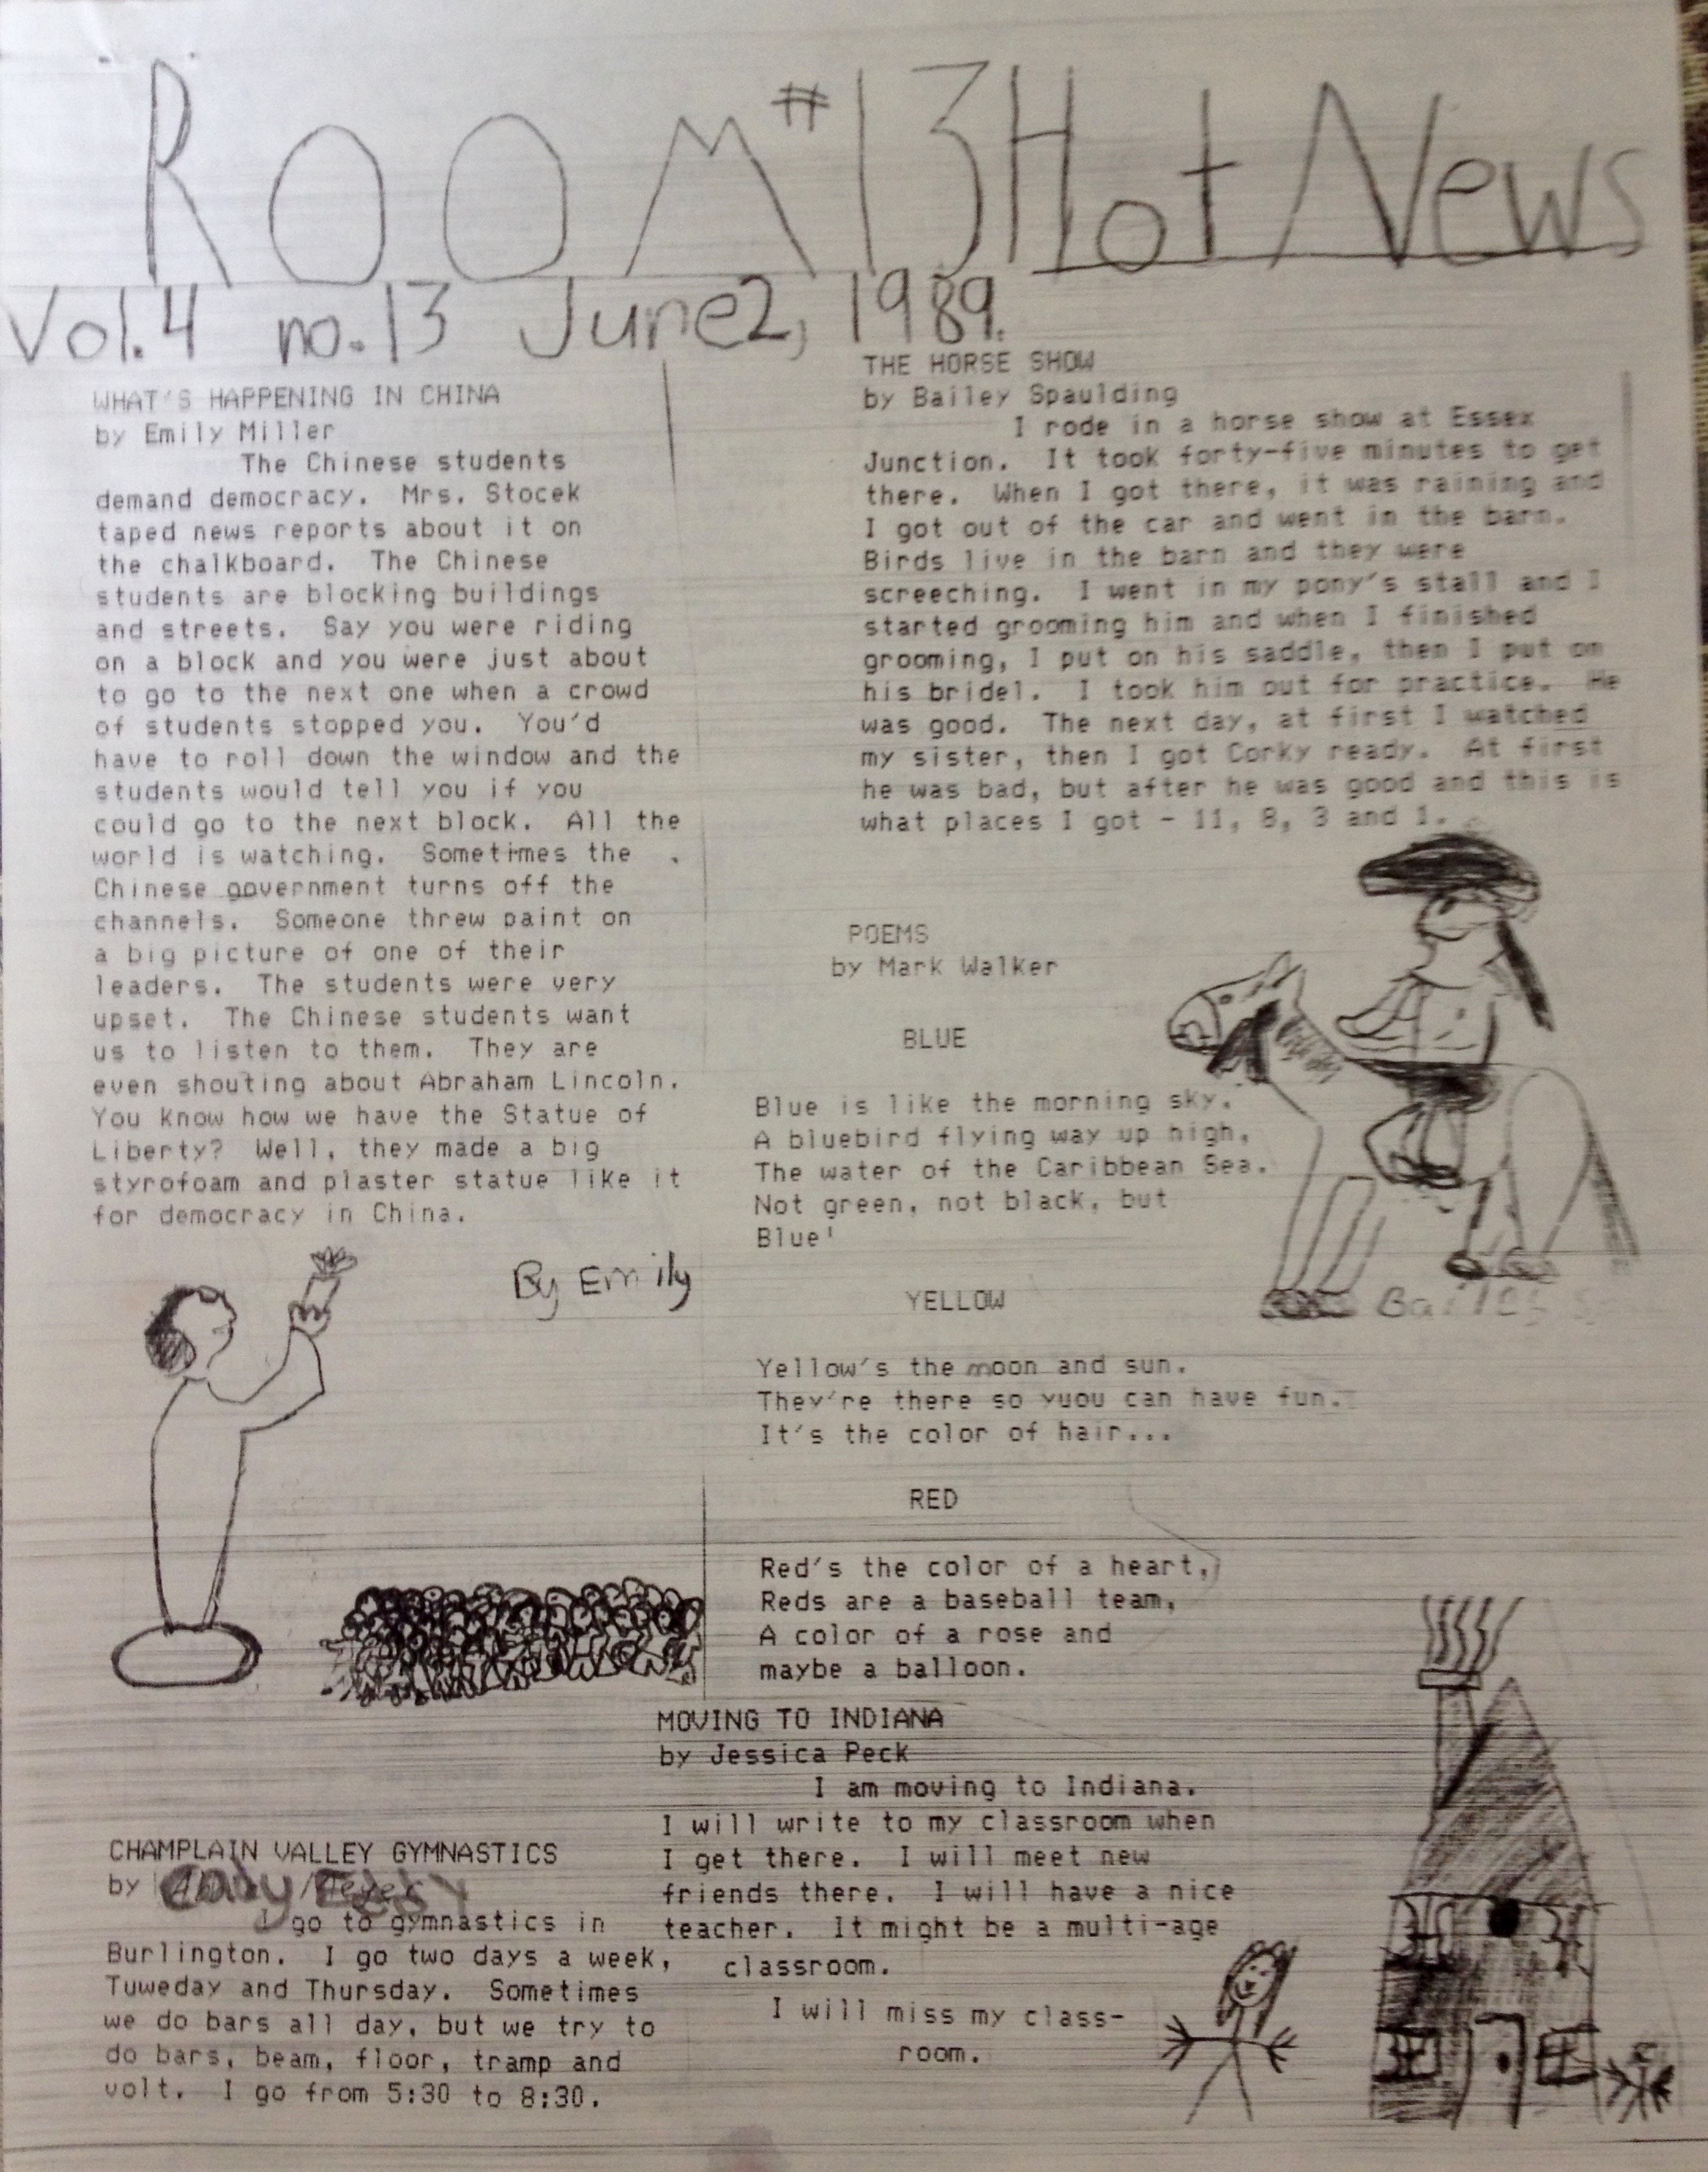 ROOM #13 Hot News
Vol. 4 no. 13 June 2, 1989.
WHAT'S HAPPENING IN CHINA
by Emily Miller
The Chinese students
demand democracy. Mrs. Stocek
taped news reports about it on
the chalkboard. The Chinese
students are blocking buildings
and streets. Say you were riding
on a block and you were just about
to go to the next one when a crowd
of students stopped you. You'd
have to roll down the window and the
students would tell you if you
could go to the next block. All the
world is watching. Sometimes the
Chinese government turns off the
channels. Someone threw paint on
a big picture of one of their
leaders. The students were very
upset. The Chinese students want
us to listen to them. They are
even shouting about Abraham Lincoln.
You know how we have the Statue of
Liberty? Well, they made a big
styrofoam and plaster statue like it
for democracy in China.
By Emily
CHAMPLAIN VALLEY GYMNASTICS
by
I go to gymnastics in
Burlington. I go two days a week,
Tuweday and Thursday. Sometimes
we do bars all day, but we try to
do bars, beam, floor, tramp and
volt. I go from 5:30 to 8:30.
THE HORSE SHOW
by Bailey Spaulding
I rode in a horse show at Essex
Junction. It took forty-five minutes to get
there. When I got there, it was raining and
I got out of the car and went in the barn.
Birds live in the barn and they were
screeching. I went in my pony's stall and I
started grooming him and when I finished
grooming, I put on his saddle, then I put on
his bridel. I took him out for practice. He
was good. The next day, at first I watched
my sister, then I got Corky ready. At first
he was bad, but after he was good and this is
what places I got - 11, 8, 3 and 1.
POEMS
by Mark Walker
BLUE
Blue is like the morning sky,
A bluebird flying way up high,
The water of the Caribbean Sea.
Not green, not black, but
Blue!
Bailey S
YELLOW
Yellow's the moon and sun.
They're there so yuou can have fun.
It's the color of hair...
RED
Red's the color of a heart,
Reds are a baseball team,
A color of a rose and
maybe a balloon.
MOVING TO INDIANA
by Jessica Peck
I am moving to Indiana.
I will write to my classroom when
I get there. I will meet new
friends there. I will have a nice
teacher. It might be a multi-age
classroom.
I will miss my class-
room.